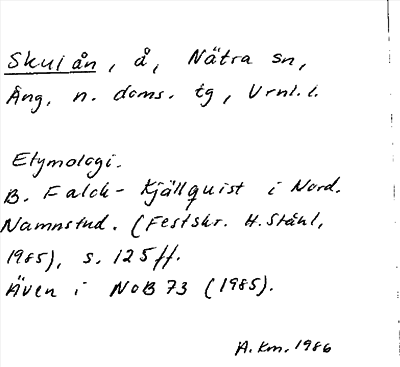 Skulån, å, Nätra sn,
Ång. n. doms. tg, Vrnl. l.
Etymologi.
B. Falck-Kjällquist i Nord.
Namnstud. (Festskr. H. Ståhl,
1985), s. 125ff.
Även i NoB 73 (1985).
A. Km. 1986